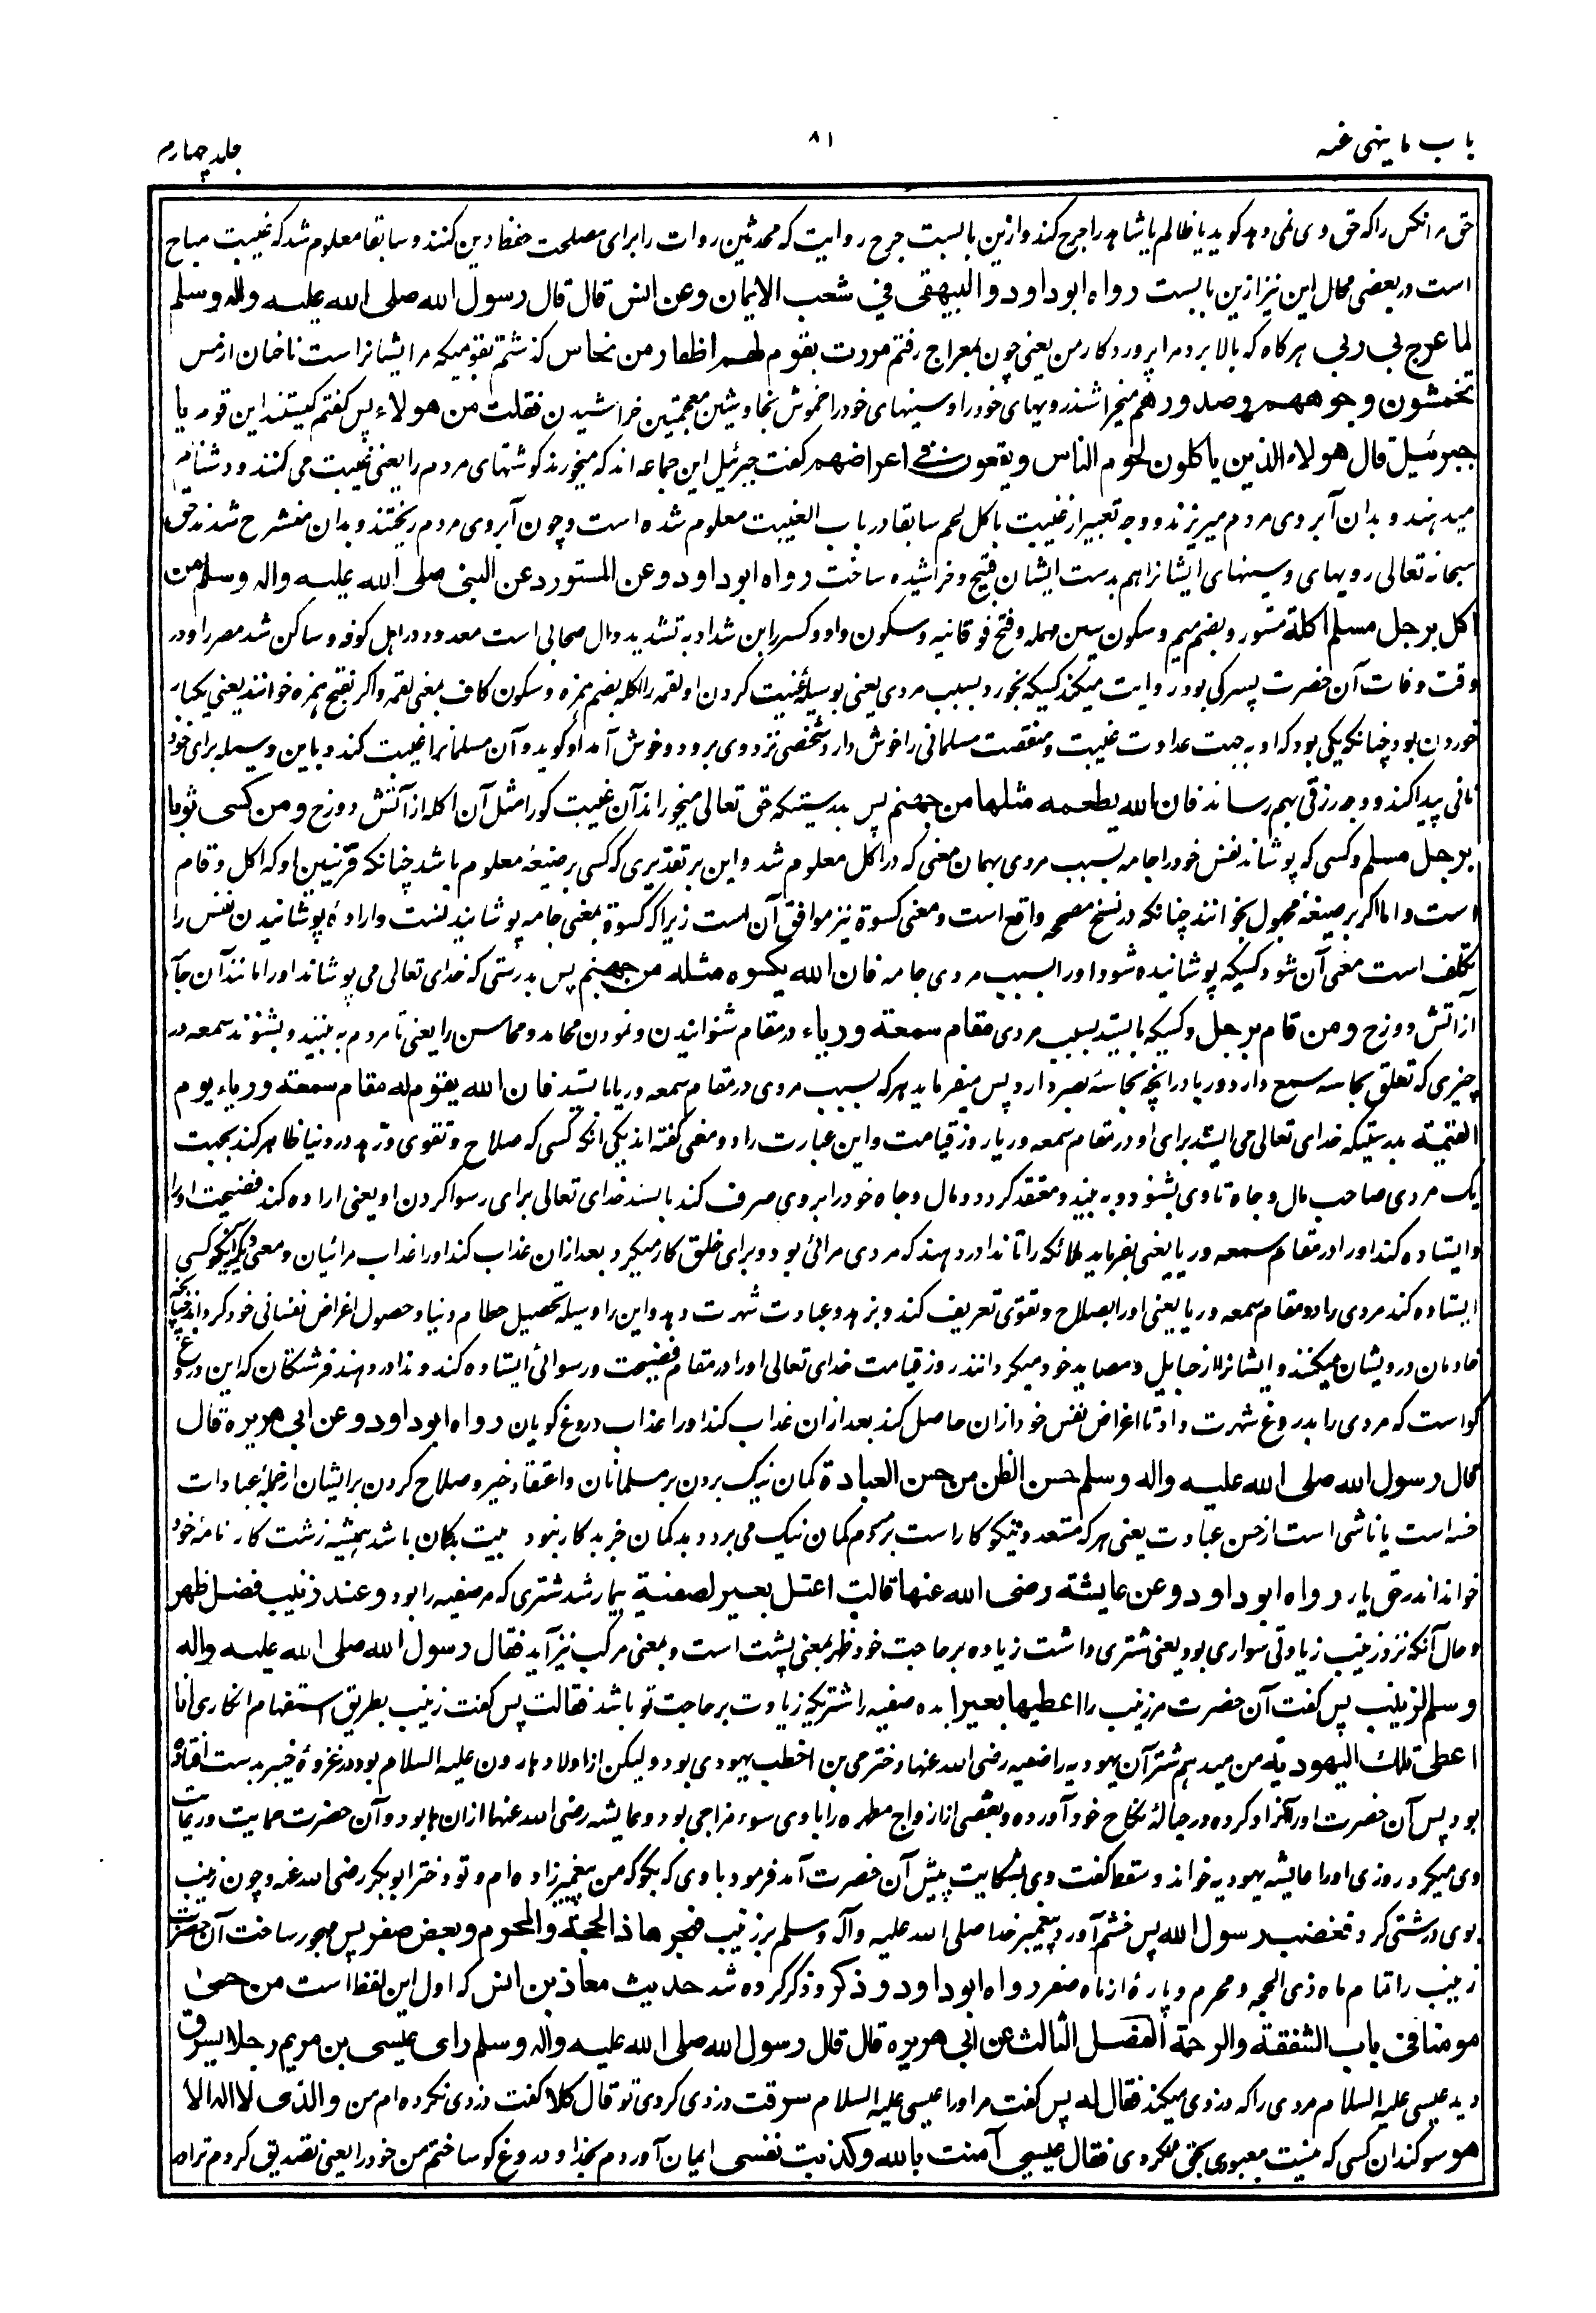 باب ما ینهی عنه
۸۱
جلد چهارم
حق مر انکس را که حق وی نمی دهد کوید یا ظالم یا شاهد را جرح کند و ازین بابست جرح روایت که محدثین روات را برای مصلحت حفظ دین کنند و سابقا معلوم شد که غیبت مباح
است در بعضی محال این نیز ازین بابست رواه ابوداود و البیهقی فی شعب الایمان وعن انس قال قال رسول الله صلی الله علیه واله وسلم
لما عرج بی ربی هرکاه که بالا برد مرا پروردکار من یعنی چون بمعراج رفتم مررت بقوم لهم اظفار من نحاس کذشتم بقومیکه مر ایشانراست ناخنان از مس
تخمشون وجوههم وصدورهم میخراشند رویهای خود را و سینهای خود را خموش بخا و شین معجمتین خراشیدن فقلت من هولاء پس کفتم کیستند این قوم یا
جبرئیل قال هولاء الذین یاکلون لحوم الناس ویقعون فی اعراضهم کفت جبرئیل این جماعه اند که میخورند کوشتهای مردم را یعنی غیبت می کنند و دشنام
میدهند و بدان آبروی مردم میریزند و وجه تعبیر از غیبت باکل لحم سابقا در باب الغیبت معلوم شده است و چون آبروی مردم ریختند و بدان منشرح شدند حق
سبحانه تعالی رویهای و سینهای ایشانرا هم بدست ایشان قبیح و خراشیده ساخت رواه ابوداود وعن المستورد عن النبی صلی الله علیه واله وسلم من
اکل برجل مسلم اکلة مستورد بضم میم و سکون سین مهمله و فتح فوقانیه و سکون واو و کسر را بن شداد به تشدید دال صحابی است معدود در اهل کوفه و ساکن شد مصر را و در
وقت وفات آن حضرت پسرکی بود روایت میکند کسیکه بخورد بسبب مردی یعنی بوسیلهٔ غیبت کردن او لقمه را اکله بضم همزه و سکون کاف بمعنی لقمه و اکر بفتح همزه خوانند یعنی یکبار
خوردن بود چنانکه یکی بود که او به جهت عداوت غیبت و منقصت مسلمانی را خوش دارد شخصی نزد وی برود و خوش آمد او کوید و آن مسلمانرا غیبت کند و باین وسیله برای خود
نانی پیدا کند و وجه رزقی بهم رساند فان الله یطعمه مثلها من جهنم پس بدرستیکه حق تعالی میخوراند آن غیبت کو را مثل آن اکله از آتش دوزخ ومن کسی ثوبا
برجل مسلم و کسی که پوشاند نفس خود را جامه بسبب مردی بهمان معنی که در اکل معلوم شد و این بر تقدیری که کسی بر صیغه معلوم باشد چنانکه قرینین او که اکل و قام
است و اما اکر بر صیغهٔ مجهول بخوانند چنانکه در نسخ مصححه واقع است و معنی کسوة نیز موافق آن است زیرا که کسوة بمعنی جامه پوشانیدنست و ارادهٔ پوشانیدن نفس را
تکلف است معنی آن شود کسیکه پوشانیده شود او را بسبب مردی جامه فان الله یکسوه مثله من جهنم پس بدرستی که خدای تعالی می پوشاند او را مانند آن جامه
از آتش دوزخ ومن قام برجل و کسیکه بایستد بسبب مردی مقام سمعة وریاء در مقام شنوانیدن و نمودن محامد و محاسن را یعنی تا مردم به بینند و بشنوند سمعه در
چیزی که تعلق بحاسه سمع دارد و ریا در انچه بحاسهٔ بصر دارد پس میفرماید هرکه بسبب مردی در مقام سمعه و ریا بایستد فان الله یقوم له مقام سمعة وریاء یوم
القیمة بدرستیکه خدای تعالی می ایستد برای او در مقام سمعه و ریا روز قیامت و این عبارت را دو معنی کفته اند یکی انکه کسی که صلاح و تقوی و زهد در دنیا ظاهر کند بجهت
یک مردی صاحب مال و جاه تا وی بشنود و به بیند و معتقد کردد و مال و جاه خود را بر وی صرف کند بایستد خدای تعالی برای رسوا کردن او یعنی اراده کند فضیحت او را
و ایستاده کند او را در مقام سمعه و ریا یعنی بفرماید ملائکه را تا ندا در دهند که مردی مرائی بود و برای خلق کار میکرد بعد از ان عذاب کند او را عذاب مرائیان و معنی دیکر انکه کسی
ایستاده کند مردی را در مقام سمعه و ریا یعنی او را بصلاح و تقوی تعریف کند و بزهد و عبادت شهرت دهد و این را وسیله تحصیل حطام دنیا و حصول اغراض نفسانی خود کرداند چنانچه
خادمان درویشان میکنند و ایشانرا از حبایل و مصاید خود میکردانند روز قیامت خدای تعالی او را در مقام فضیحت و رسوائی ایستاده کند و ندا در دهند فرشتکان که این دروغ
کو است که مردی را بدروغ شهرت داد تا اغراض نفس خود از ان حاصل کند بعد از ان عذاب کند او را عذاب دروغ کویان رواه ابوداود وعن ابی هریرة قال
قال رسول الله صلی الله علیه واله وسلم حسن الظن من حسن العبادة کمان نیک بردن بر مسلمانان و اعتقاد خیر و صلاح کردن بر ایشان از جملهٔ عبادات
حسنه است یا ناشی است از حسن عبادت یعنی هرکه متعبد و نیکوکار است بر مردم کمان نیک می برد و بدکمان خبر بدکار نبود بیت بدکمان باشد همیشه زشت کار نامهٔ خود
خواند اندر حق یار رواه ابوداود وعن عایشة رضی الله عنها قالت اعتل بعیر لصفیة بیمار شد شتری که مر صفیه را بود وعند زینب فضل ظهر
و حال آنکه نزد زینب زیادتی سواری بود یعنی شتری داشت زیاده بر حاجت خود ظهر بمعنی پشت است و بمعنی مرکب نیز آید فقال رسول الله صلی الله علیه واله
وسلم لزینب پس کفت آن حضرت مر زینب را اعطیها بعیرا بده صفیه را شتریکه زیادت بر حاجت تو باشد فقالت پس کفت زینب بطریق استفهام انکاری انا
اعطی تلک الیهودیة من میدهم شتر آن یهودیه را صفیه رضی الله عنها دختر حی بن اخطب یهودی بود و لیکن از اولاد هارون علیه السلام بود در غزوهٔ خیبر بدست افتاده
بود پس آن حضرت او را آزاد کرده در حبالهٔ نکاح خود آورده و بعضی از ازواج مطهره را با وی سوء مزاجی بود و عایشه رضی الله عنها از ان ها بود و آن حضرت حمایت و رعایت
وی میکرد روزی او را عایشه یهودیه خواند و سقط کفت وی بشکایت پیش آن حضرت آمد فرمود با وی که بکو که من پیغمبر زاده ام و تو دختر ابوبکر رضی الله عنه و چون زینب
بوی درشتی کرد فغضب رسول الله پس خشم آورد پیغمبر خدا صلی الله علیه وآله وسلم بر زینب فهجرها ذا الحجة والمحرم وبعض صفر پس مهجور ساخت آن حضرت
زینب را تمام ماه ذی الحجه و محرم و پارهٔ از ماه صفر رواه ابوداود وذکر و ذکر کرده شد حدیث معاذ بن انس که اول این لفظ است من حمی
مومنا فی باب الشفقة والرحمة الفصل الثالث عن ابی هریرة قال قال رسول الله صلی الله علیه واله وسلم رای عیسی بن مریم رجلا یسرق
دید عیسی علیه السلام مردی را که دزدی میکند فقال له پس کفت مر او را عیسی علیه السلام سرقت دزدی کردی تو قال کلا کفت دزدی نکرده ام من والذی لا اله الا
هو سوکند ان کسی که نیست معبودی بحق مکر وی فقال عیسی آمنت بالله وکذبت نفسی ایمان آوردم بخدا و دروغ کو ساختم من خود را یعنی تصدیق کردم ترا در